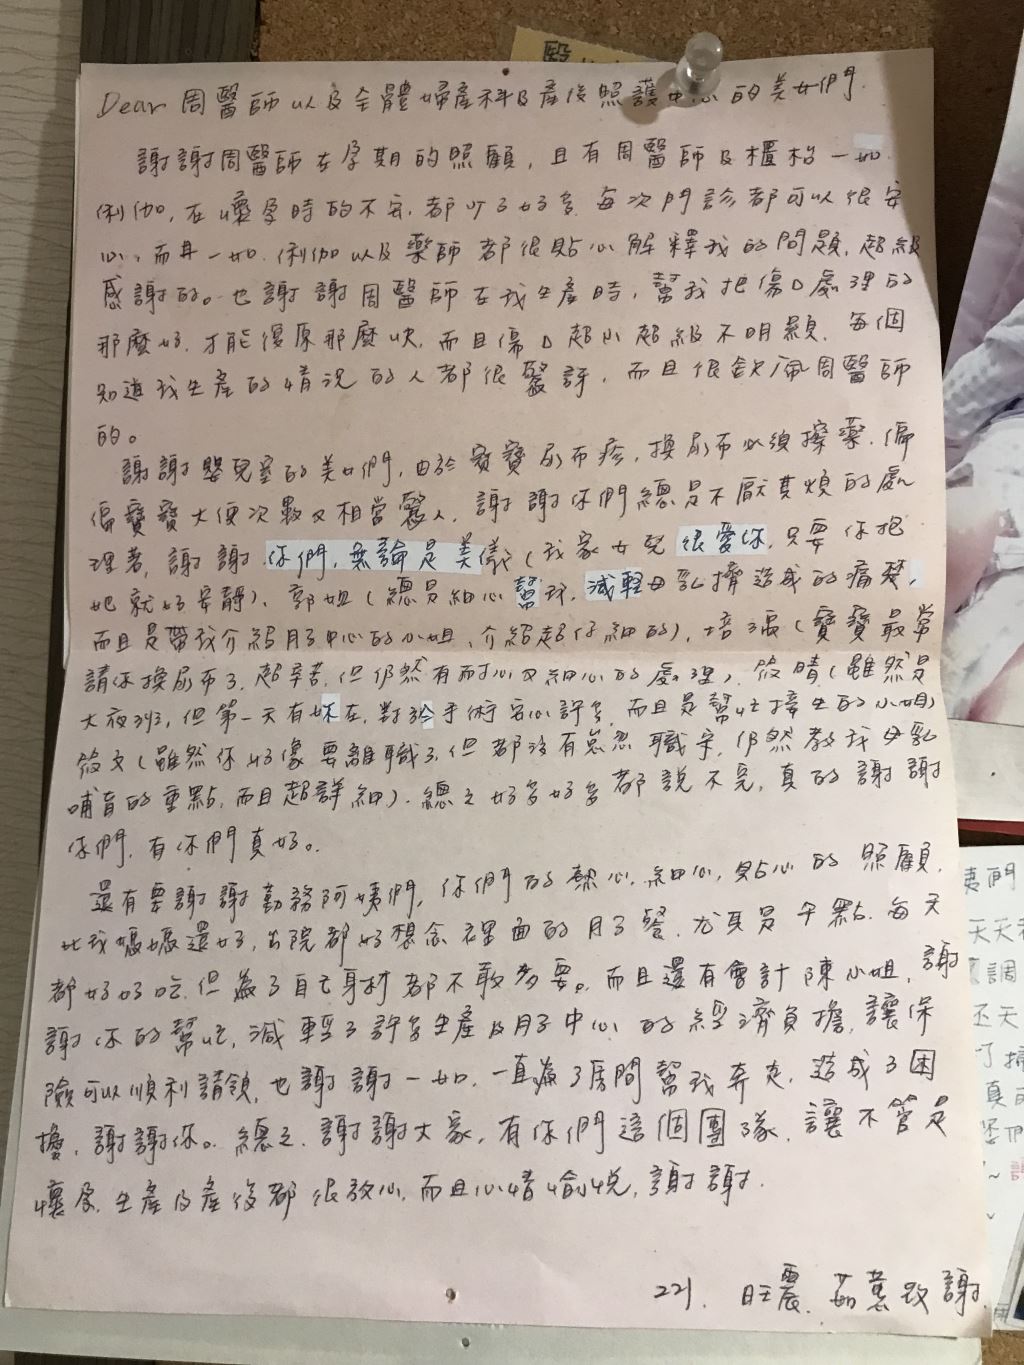 Dear 周醫師以及全體婦產科及產後照護中心的美女們.
謝謝周醫師在孕期的照顧, 且有周醫師及櫃枱一如.
俐伽, 在懷孕時的不安, 都少了好多. 每次門診都可以很安
心, 而且一如. 俐伽以及藥師都很貼心解釋我的問題, 超級
感謝的。也謝謝周醫師在我生產時, 幫我把傷口處理的
那麼好, 才能復原那麼快, 而且傷口超小超級不明顯. 每個
知道我生產的情況的人都很驚訝, 而且很欽佩周醫師
的。
謝謝嬰兒室的美女們, 由於寶寶尿布疹, 換尿布必須擦藥, 偏
偏寶寶大便次數又相當驚人, 謝謝你們總是不厭其煩的處
理著, 謝謝你們, 無論是美儀(我家女兒很愛你, 只要你抱
她就好安靜)、郭姐(總是細心幫我, 減輕母乳擠造成的痛楚,
而且是帶我介紹月子中心的小姐、介紹超仔細的), 培(寶寶最常
請你換尿布了, 超辛苦, 但仍然有耐心又細心的處理), 筱晴(雖然是
大夜班, 但第一天有妳在, 對於手術安心許多, 而且是幫忙接生的小姐)
筱文(雖然你好像要離職了, 但都沒有怠忽職守, 仍然教我母乳
哺育的重點, 而且超詳細). 總之好多好多都說不完, 真的謝謝
你們, 有你們真好。
還有要謝謝勤務阿姨們, 你們的熱心, 細心, 貼心的照顧,
比我媽媽還好, 出院都好想念裡面的月子餐, 尤其是午點. 每天
都好好吃, 但為了自己身材都不敢多要。而且還有會計陳小姐, 謝
謝你的幫忙, 減輕了許多生產及月子中心的經濟負擔, 讓保
險可以順利請領, 也謝謝一如, 一直為了房間幫我奔走, 造成了困
擾, 謝謝你。總之, 謝謝大家, 有你們這個團隊, 讓不管是
懷孕, 生產及產後都很放心, 而且心情愉悅, 謝謝.
221. 旺震. 茹慧致謝.
姨們
天天
調
天
打掃
真的